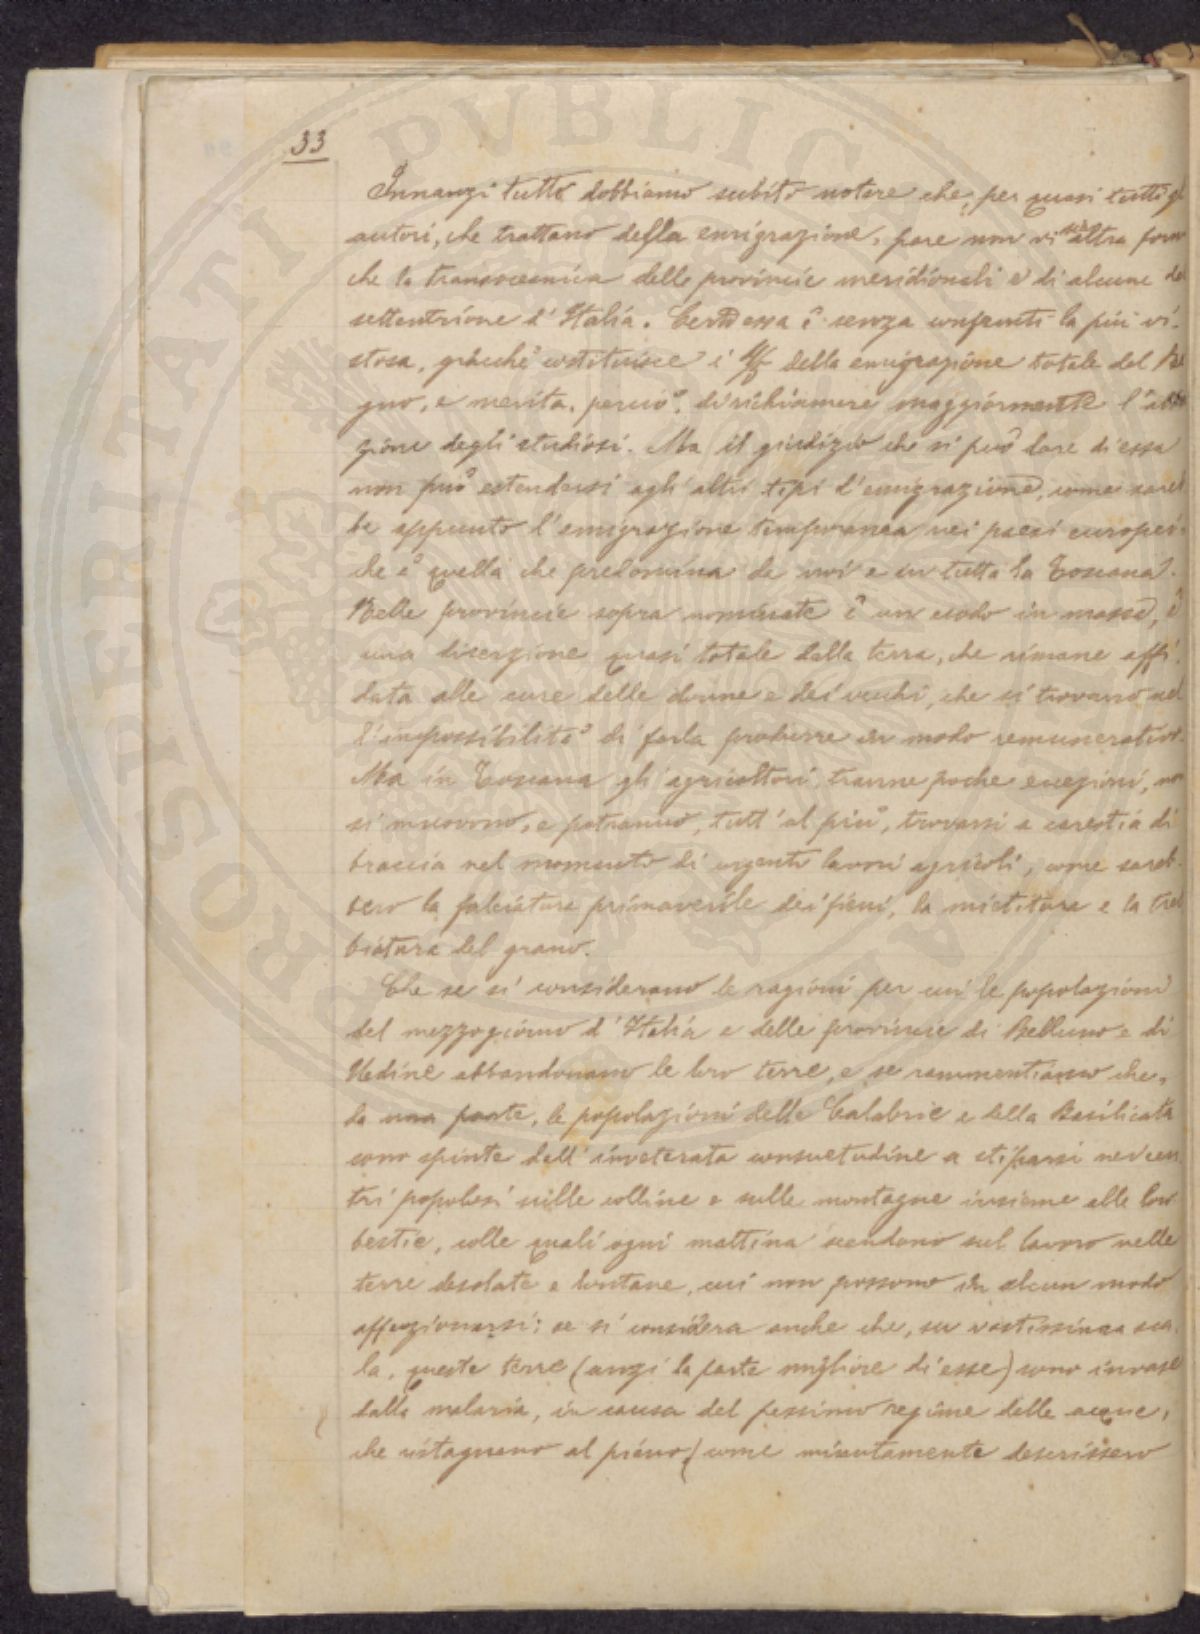 33
Innanzi tutto dobbiamo subito notare che, per quasi tutti gl
autori, che trattano della emigrazione, pare non vi sia altra form
che la transoceanica delle provincie meridionali e di alcune del
settentrione d'Italia. Certo essa è senza confronti la più vi-
stosa, giacchè costituisce i della emigrazione totale del Re
gno, e merita, perciò, di richiamare maggiormente l'atten
zione degli studiosi. Ma il giudizio che si può dare di essa
non può estendersi agli altri tipi d'emigrazione, come sareb
be appunto l'emigrazione temporanea nei paesi europei-
che è quella che predomina da noi e in tutta la Toscana.
Nelle provincie sopra nominate è un esodo in massa, è
una diserzione quasi totale dalla terra, che rimane affi-
data alle cure delle donne e dei vecchi, che si trovano nel
l'impossibilità di farla produrre in modo remunerativo.
Ma in Toscana gli agricoltori, tranne poche eccezioni, non
si muovono, e potranno, tutt'al più, trovarsi a carestia di
braccia nel momento di urgenti lavori agricoli, come sareb-
bero la falciatura primaverile dei fieni, la mietitura e la treb
biatura del grano.
Che se si considerano le ragioni per cui le popolazioni
del mezzogiorno d'Italia e delle provincie di Belluno e di
Udine abbandonano le loro terre, e se rammentiamo che,
da una parte, le popolazioni delle Calabrie e della Basilicata
sono spinte dall'inveterata consuetudine a stiparsi nei cen
tri popolosi sulle colline e sulle montagne insieme alle loro
bestie, colle quali ogni mattina scendono sul lavoro nelle
terre desolate e lontane, cui non possono in alcun modo
affezionarsi; se si considera anche che, su vastissima sca
la, queste terre (anzi la parte migliore di esse) sono invase
dalla malaria, in causa del pessimo regime delle acque,
che ristagnano al piano (come minutamente descrissero
PROSPERITATI PVBLICAE